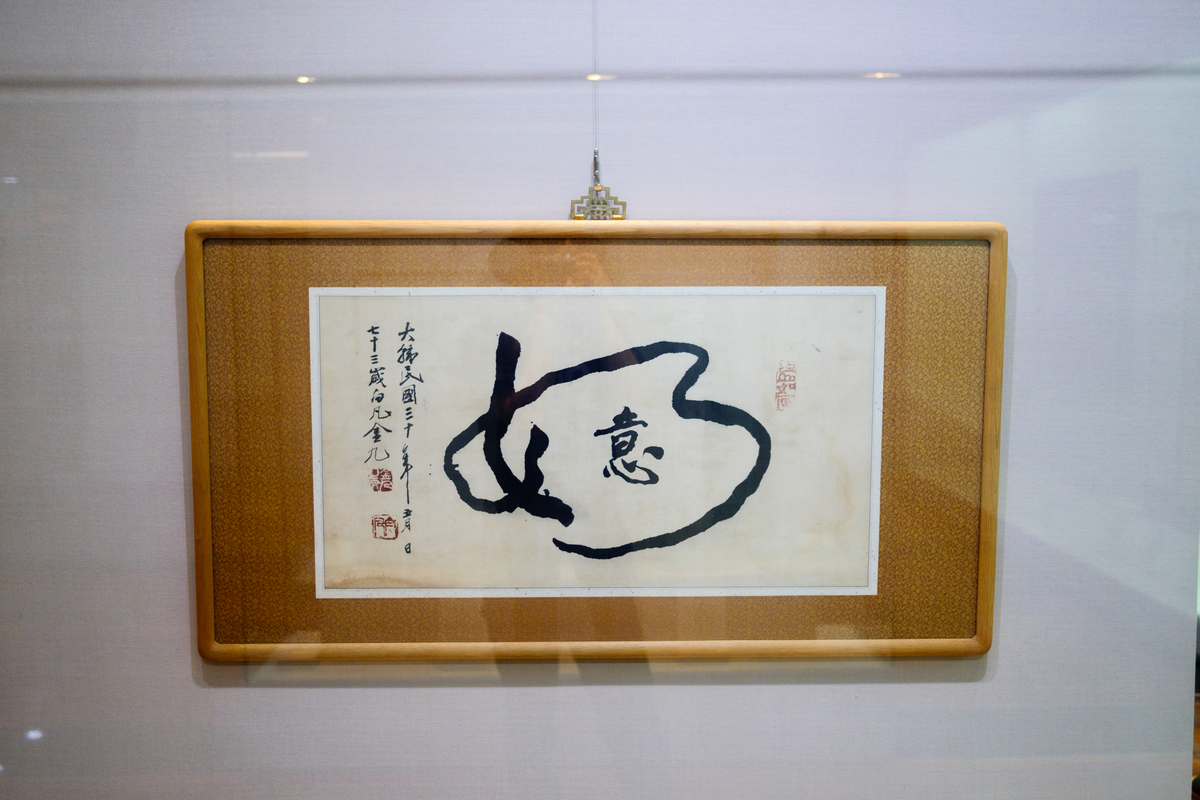 如意
大韓民國三十年五月 日
七十三歲白凡金九